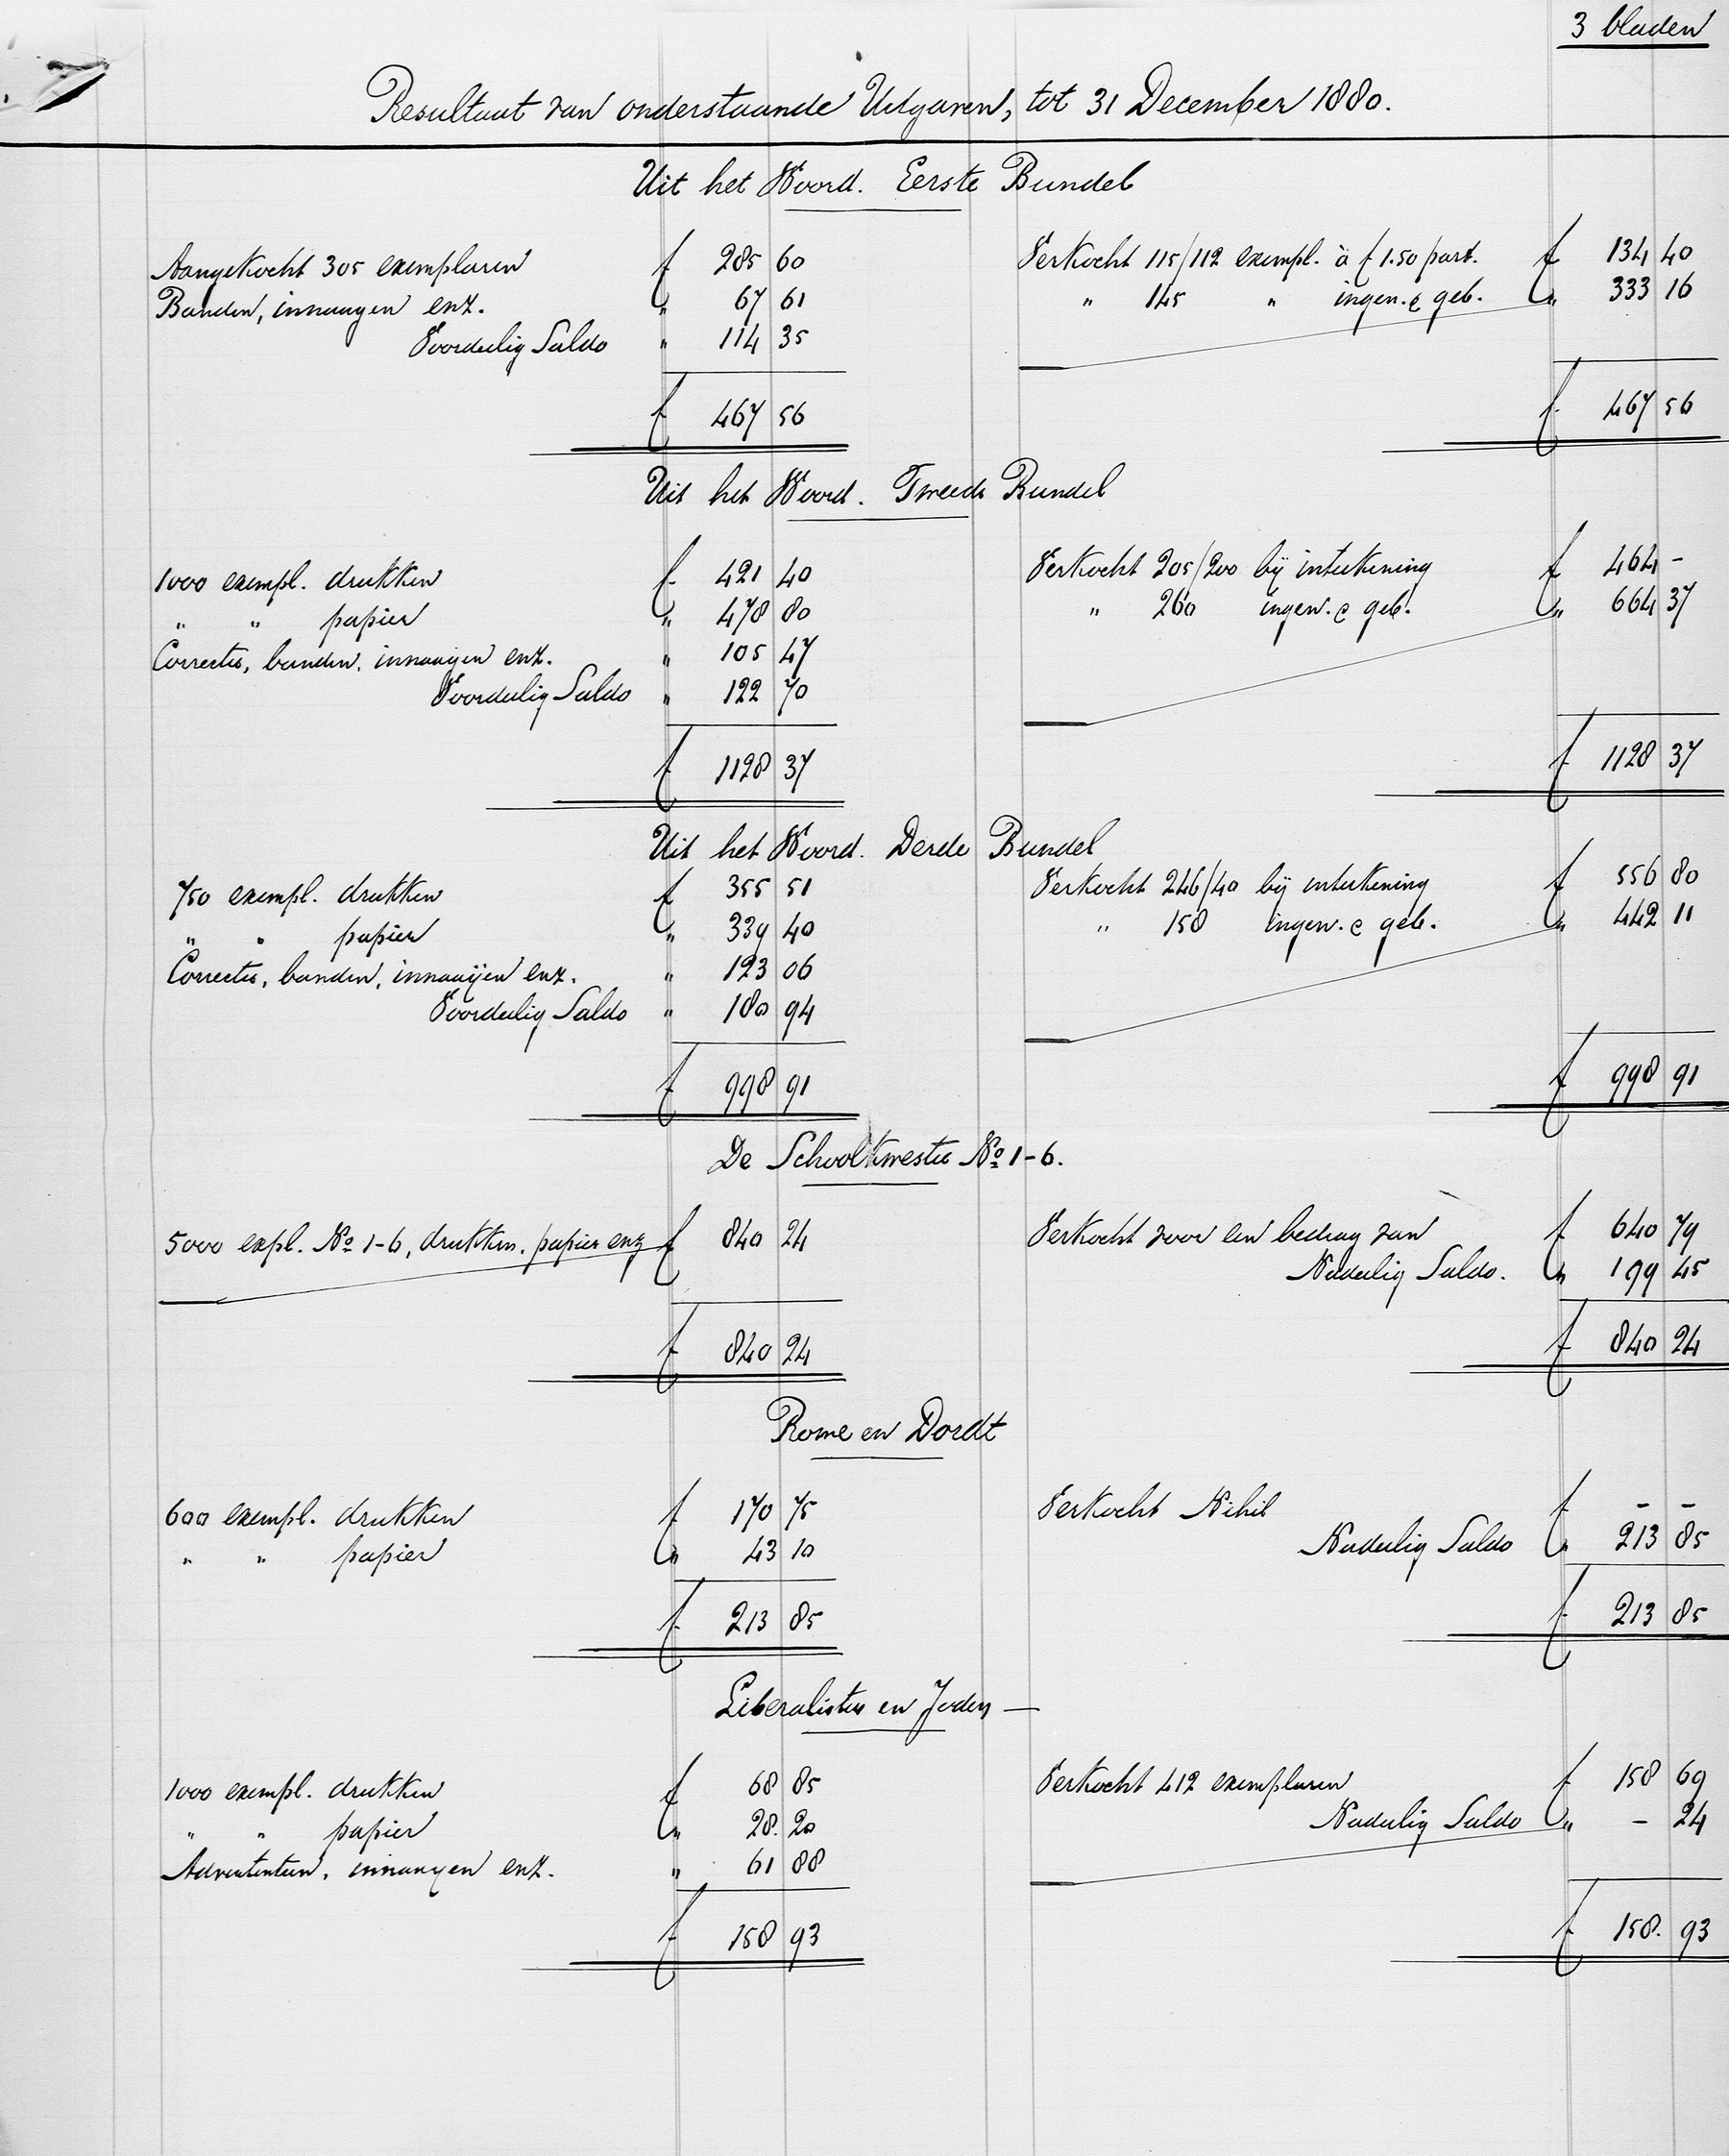 3 bladen
Resultaat van onderstaande Uitgaven, tot 31 December 1880.
Uit het Woord. Eerste Bundel
Aangekocht 305 exemplaren f 285 60 Verkocht 115/112 exempl. à f 1.50 part. f 134 40
Banden, innaayen enz. " 67 61 " 145 " ingen. & geb. " 333 16
Voordeelig Saldo " 114 35
f 467 56 f 467 56
Uit het Woord. Tweede Bundel
1000 exempl. drukken f 421 40 Verkocht 205/200 bij inteekening f 464 -
" " papier " 478 80 " 260 ingen. & geb. " 664 37
Correctie, banden, innaayen enz. " 105 47
Voordeelig Saldo " 122 70
f 1128 37 f 1128 37
Uit het Woord. Derde Bundel
750 exempl. drukken f 355 51 Verkocht 246/40 bij inteekening f 556 80
" " papier " 339 40 " 158 ingen. & geb. " 442 11
Correctie, banden, innaaijen enz. " 123 06
Voordeelig Saldo " 180 94
f 998 91 f 998 91
De Schoolkwestie No 1-6.
5000 expl. No 1-6, drukken, papier enz f 840 24 Verkocht voor een bedrag van f 640 79
Nadeelig Saldo. " 199 45
f 840 24 f 840 24
Rome en Dordt
600 exempl. drukken f 170 75 Verkocht Nihil f - -
" " papier " 43 10 Nadeelig Saldo " 213 85
f 213 85 f 213 85
Liberalisten en Joden —
1000 exempl. drukken f 68 85 Verkocht 412 exemplaren f 158 69
" " papier " 28. 20 Nadeelig Saldo " - 24
Advertentien, innaayen enz. " 61 88
f 158 93 f 158. 93